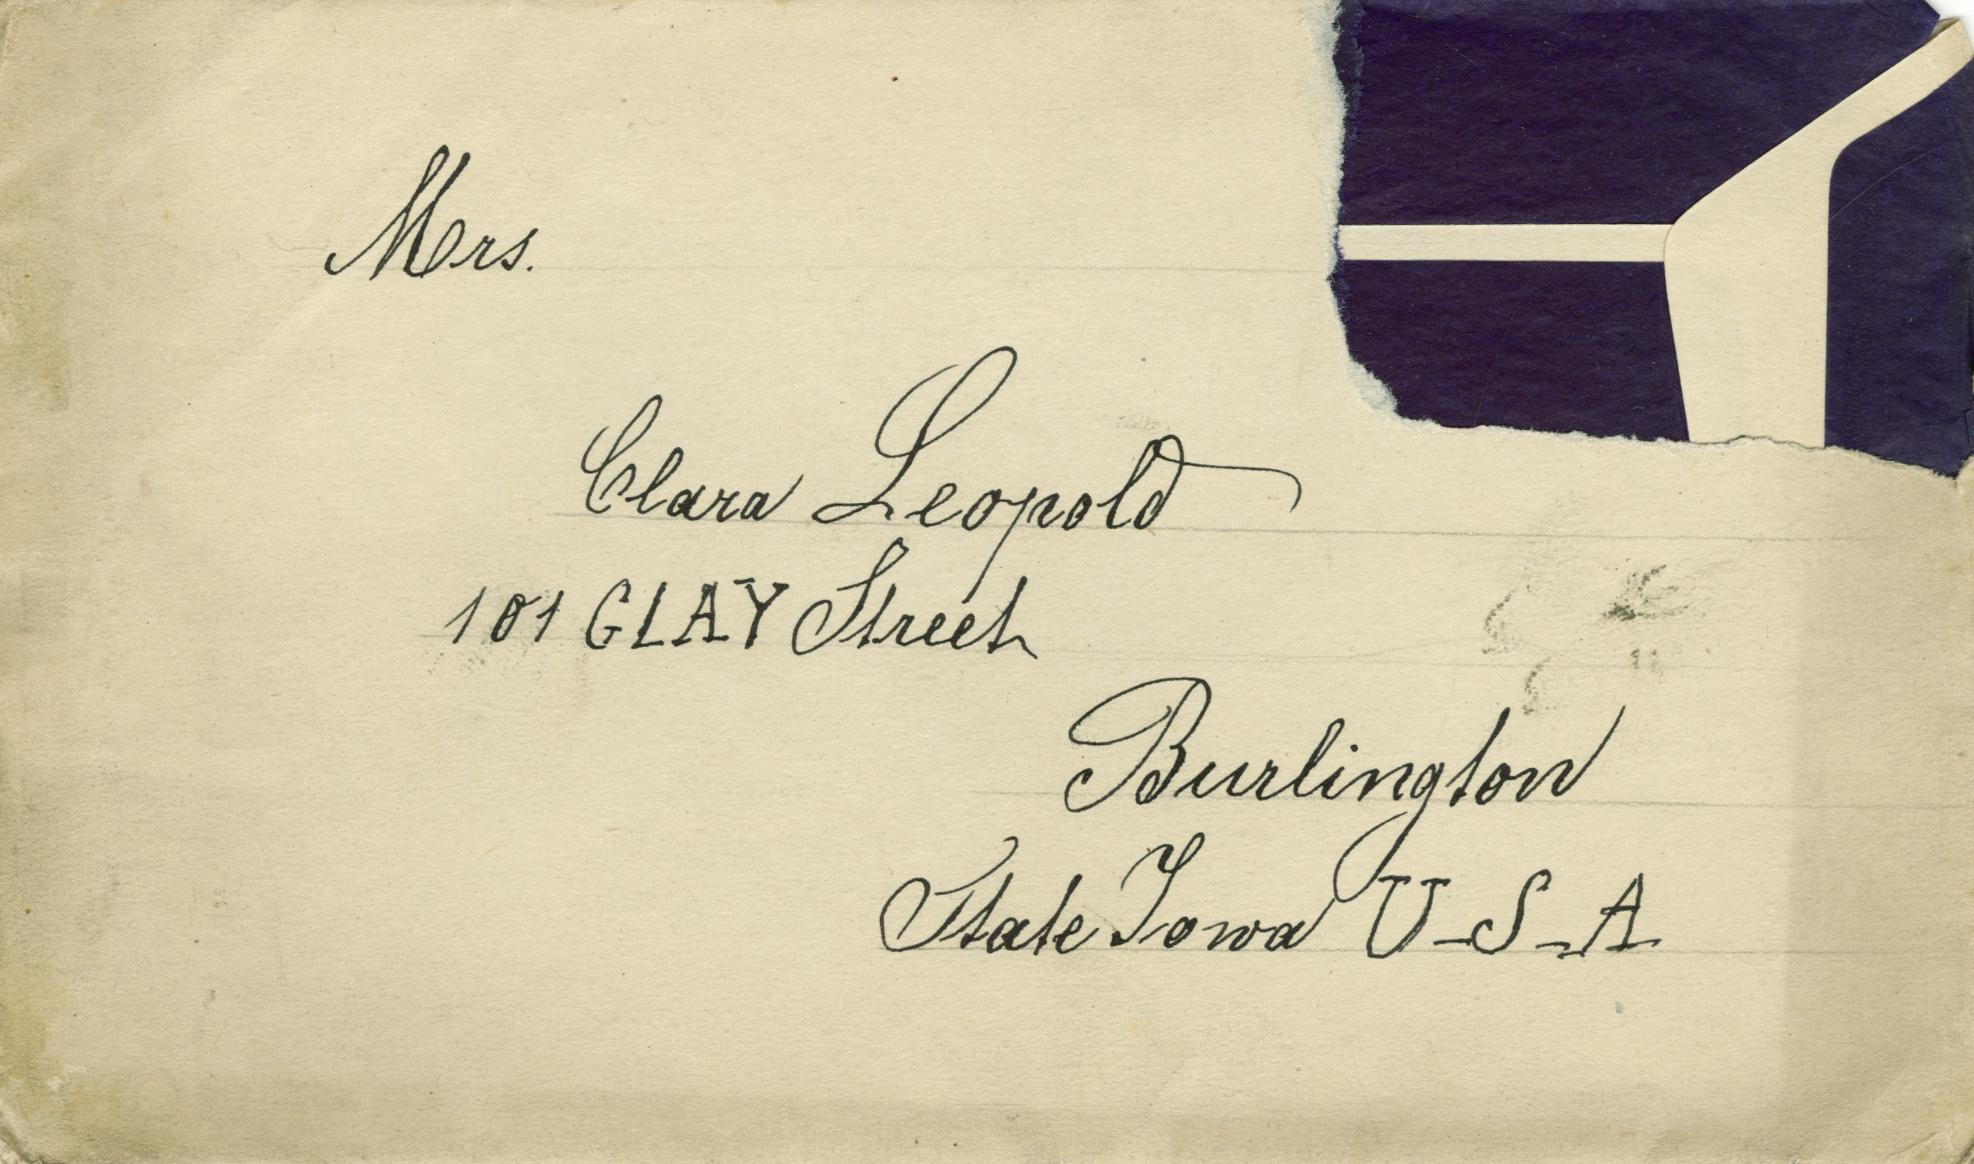 Mrs.
Clara Leopold
101 GLAY Street
Burlington
State Iowa U_S_A